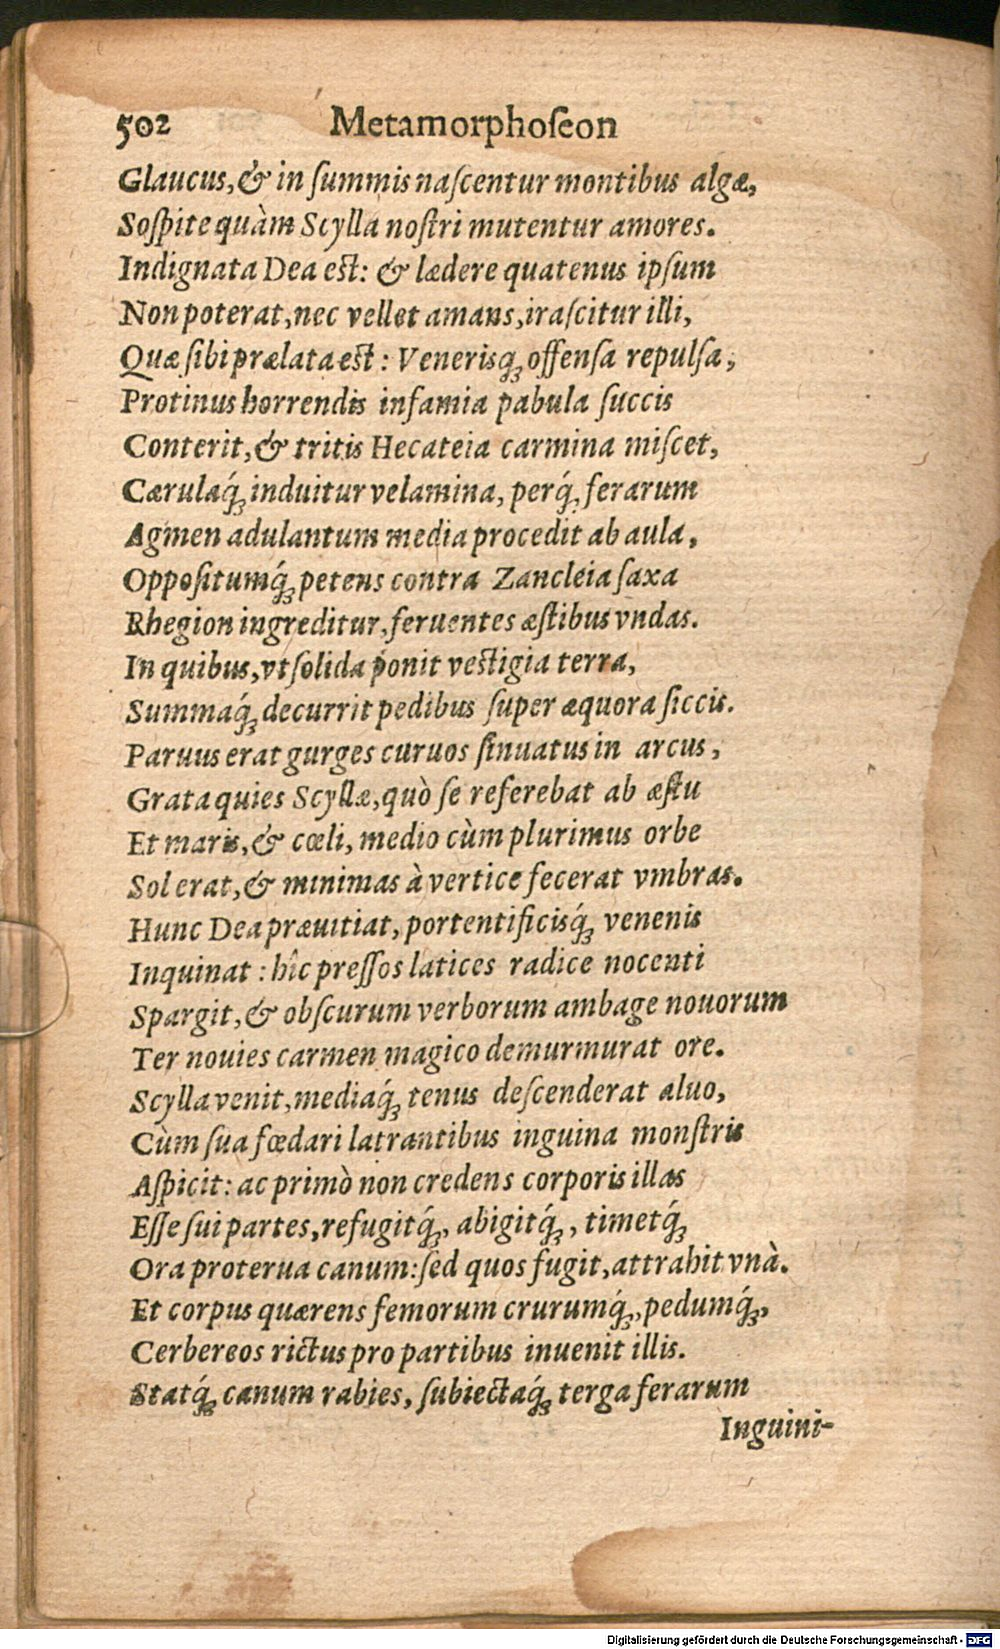 502 Metamorphoſeon
Glaucus, & in ſummis naſcentur montibus algæ,
Soſpite quàm Scylla noſtri mutentur amores.
Indignata Dea est: & lædere quatenus ipſum
Non poterat, nec vellet amans, iraſcitur illi,
Quæ ſibi prælata est: Venerisq́ꝫ offenſa repulſa,
Protinus horrendis infamia pabula ſuccis
Conterit, & tritis Hecateia carmina miſcet,
Cærulaq́ꝫ induitur velamina, perq́ꝫ ferarum
Agmen adulantum media procedit ab aula,
Oppoſitumq́ꝫ petens contra Zancleia ſaxa
Rhegion ingreditur, feruentes æſtibus vndas.
In quibus, vt ſolida ponit vestigia terra,
Summaq́ꝫ decurrit pedibus ſuper æquora ſiccis.
Paruus erat gurges curuos ſinuatus in arcus,
Grata quies Scyllæ, quò ſe referebat ab æſtu
Et maris, & cœli, medio cùm plurimus orbe
Sol erat, & minimas à vertice fecerat vmbras.
Hunc Dea præuitiat, portentificisq́ꝫ venenis
Inquinat: hîc preſſos latices radice nocenti
Spargit, & obſcurum verborum ambage nouorum
Ter nouies carmen magico demurmurat ore.
Scylla venit, mediaq́ꝫ tenus deſcenderat aluo,
Cùm ſua fœdari latrantibus inguina monſtris
Aſpicit: ac primò non credens corporis illas
Eſſe ſui partes, refugitq́ꝫ, abigitq́ꝫ, timetq́ꝫ
Ora proterua canum: ſed quos fugit, attrahit vnà.
Et corpus quærens femorum crurumq́ꝫ, pedumq́ꝫ,
Cerbereos rictus pro partibus inuenit illis.
Statq́ꝫ canum rabies, ſubiectaq́ꝫ terga ferarum
Inguini-
Digitalisierung gefördert durch die Deutsche Forschungsgemeinschaft - DFG